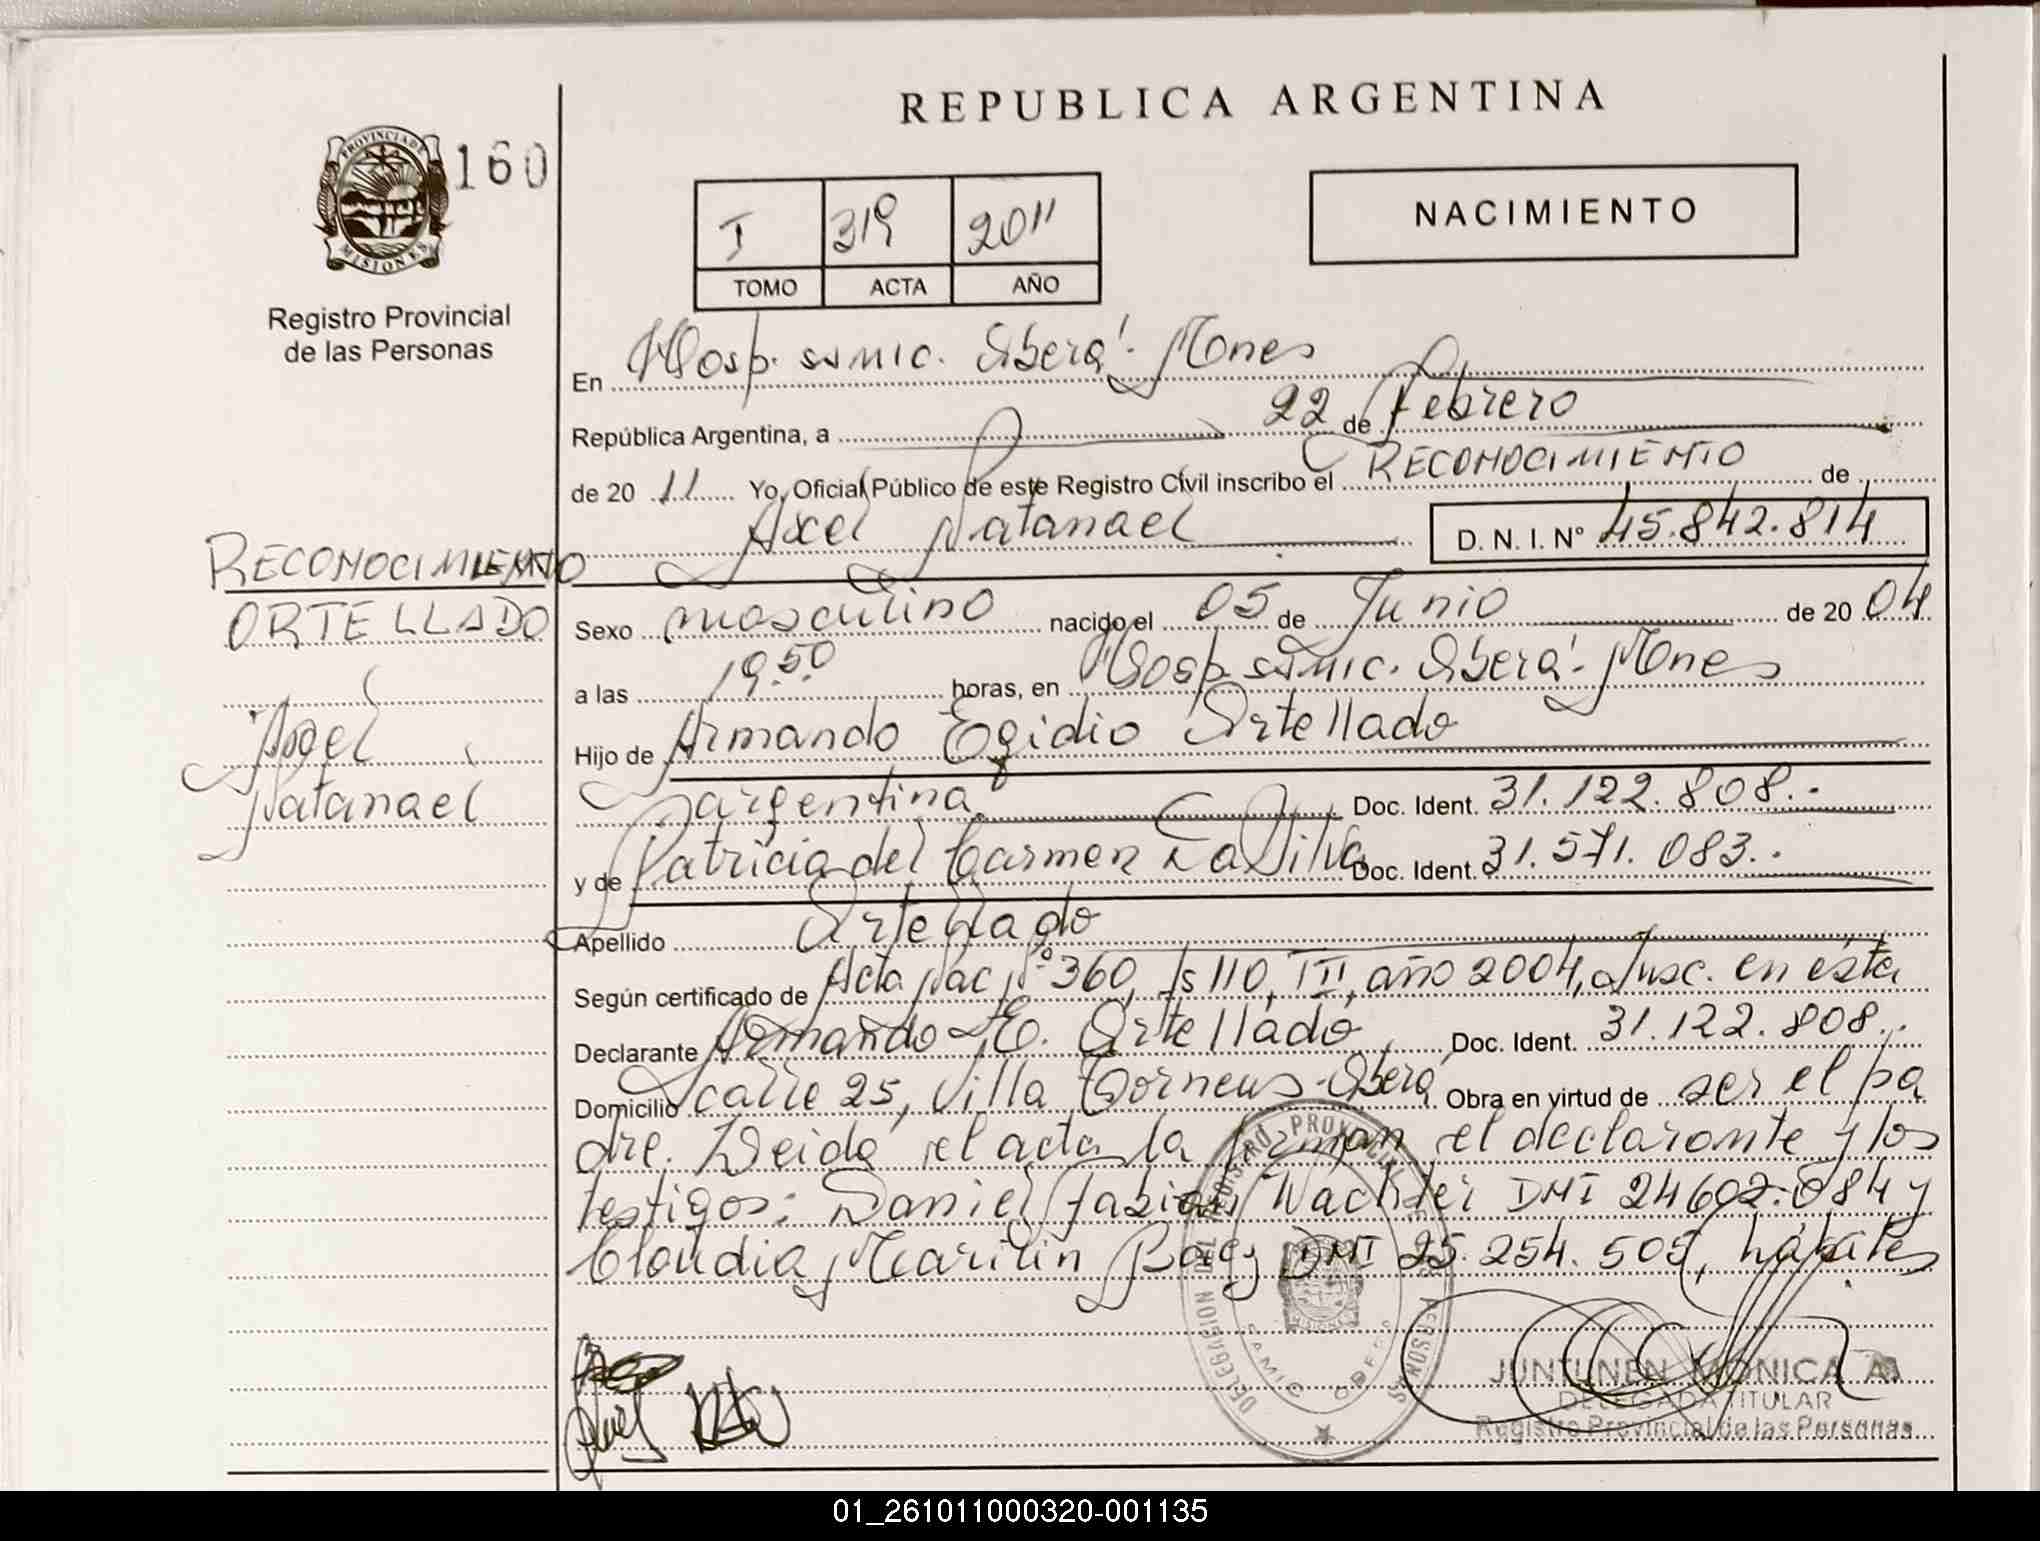 REPUBLICA ARGENTINA
PROVINCIA DE
MISIONES
160
Registro Provincial
de las Personas
I 319 2011
TOMO ACTA AÑO
NACIMIENTO
En Hosp. SAMIC. Oberá - Mnes
República Argentina, a 22 de Febrero
de 20 11 Yo, Oficial Público de este Registro Civil inscribo el RECONOCIMIENTO de
Axel Natanael D. N. I. Nº 45.842.814
RECONOCIMIENTO
ORTELLADO
Axel
Natanael
Sexo masculino nacido el 05 de Junio de 20 04
a las 19.50 horas, en Hosp. SAMIC. Oberá - Mnes
Hijo de Armando Egidio Ortellado
argentina Doc. Ident. 31.122.808..
y de Patricia del Carmen Da Silva Doc. Ident. 31.571.083..
Apellido Ortellado
Según certificado de Acta Nac Nº 360, fs 110, TII, año 2004, Insc. en ésta
Declarante Armando E. Ortellado Doc. Ident. 31.122.808..
Domicilio calle 25, Villa Oberá Obra en virtud de ser el pa
dre. Leida el acta la firman el declarante y los
testigos: Daniel Fabian Wachter DNI 24602.084 y
Claudia Marilin Baez DNI 25.254.505, hábiles
DELEGACION DEL REGISTRO PROVINCIAL DE LAS PERSONAS
SAMIC OBERA
JUNTUNEN MONICA A.
DELEGADA TITULAR
Registro Provincial de las Personas
01_261011000320-001135